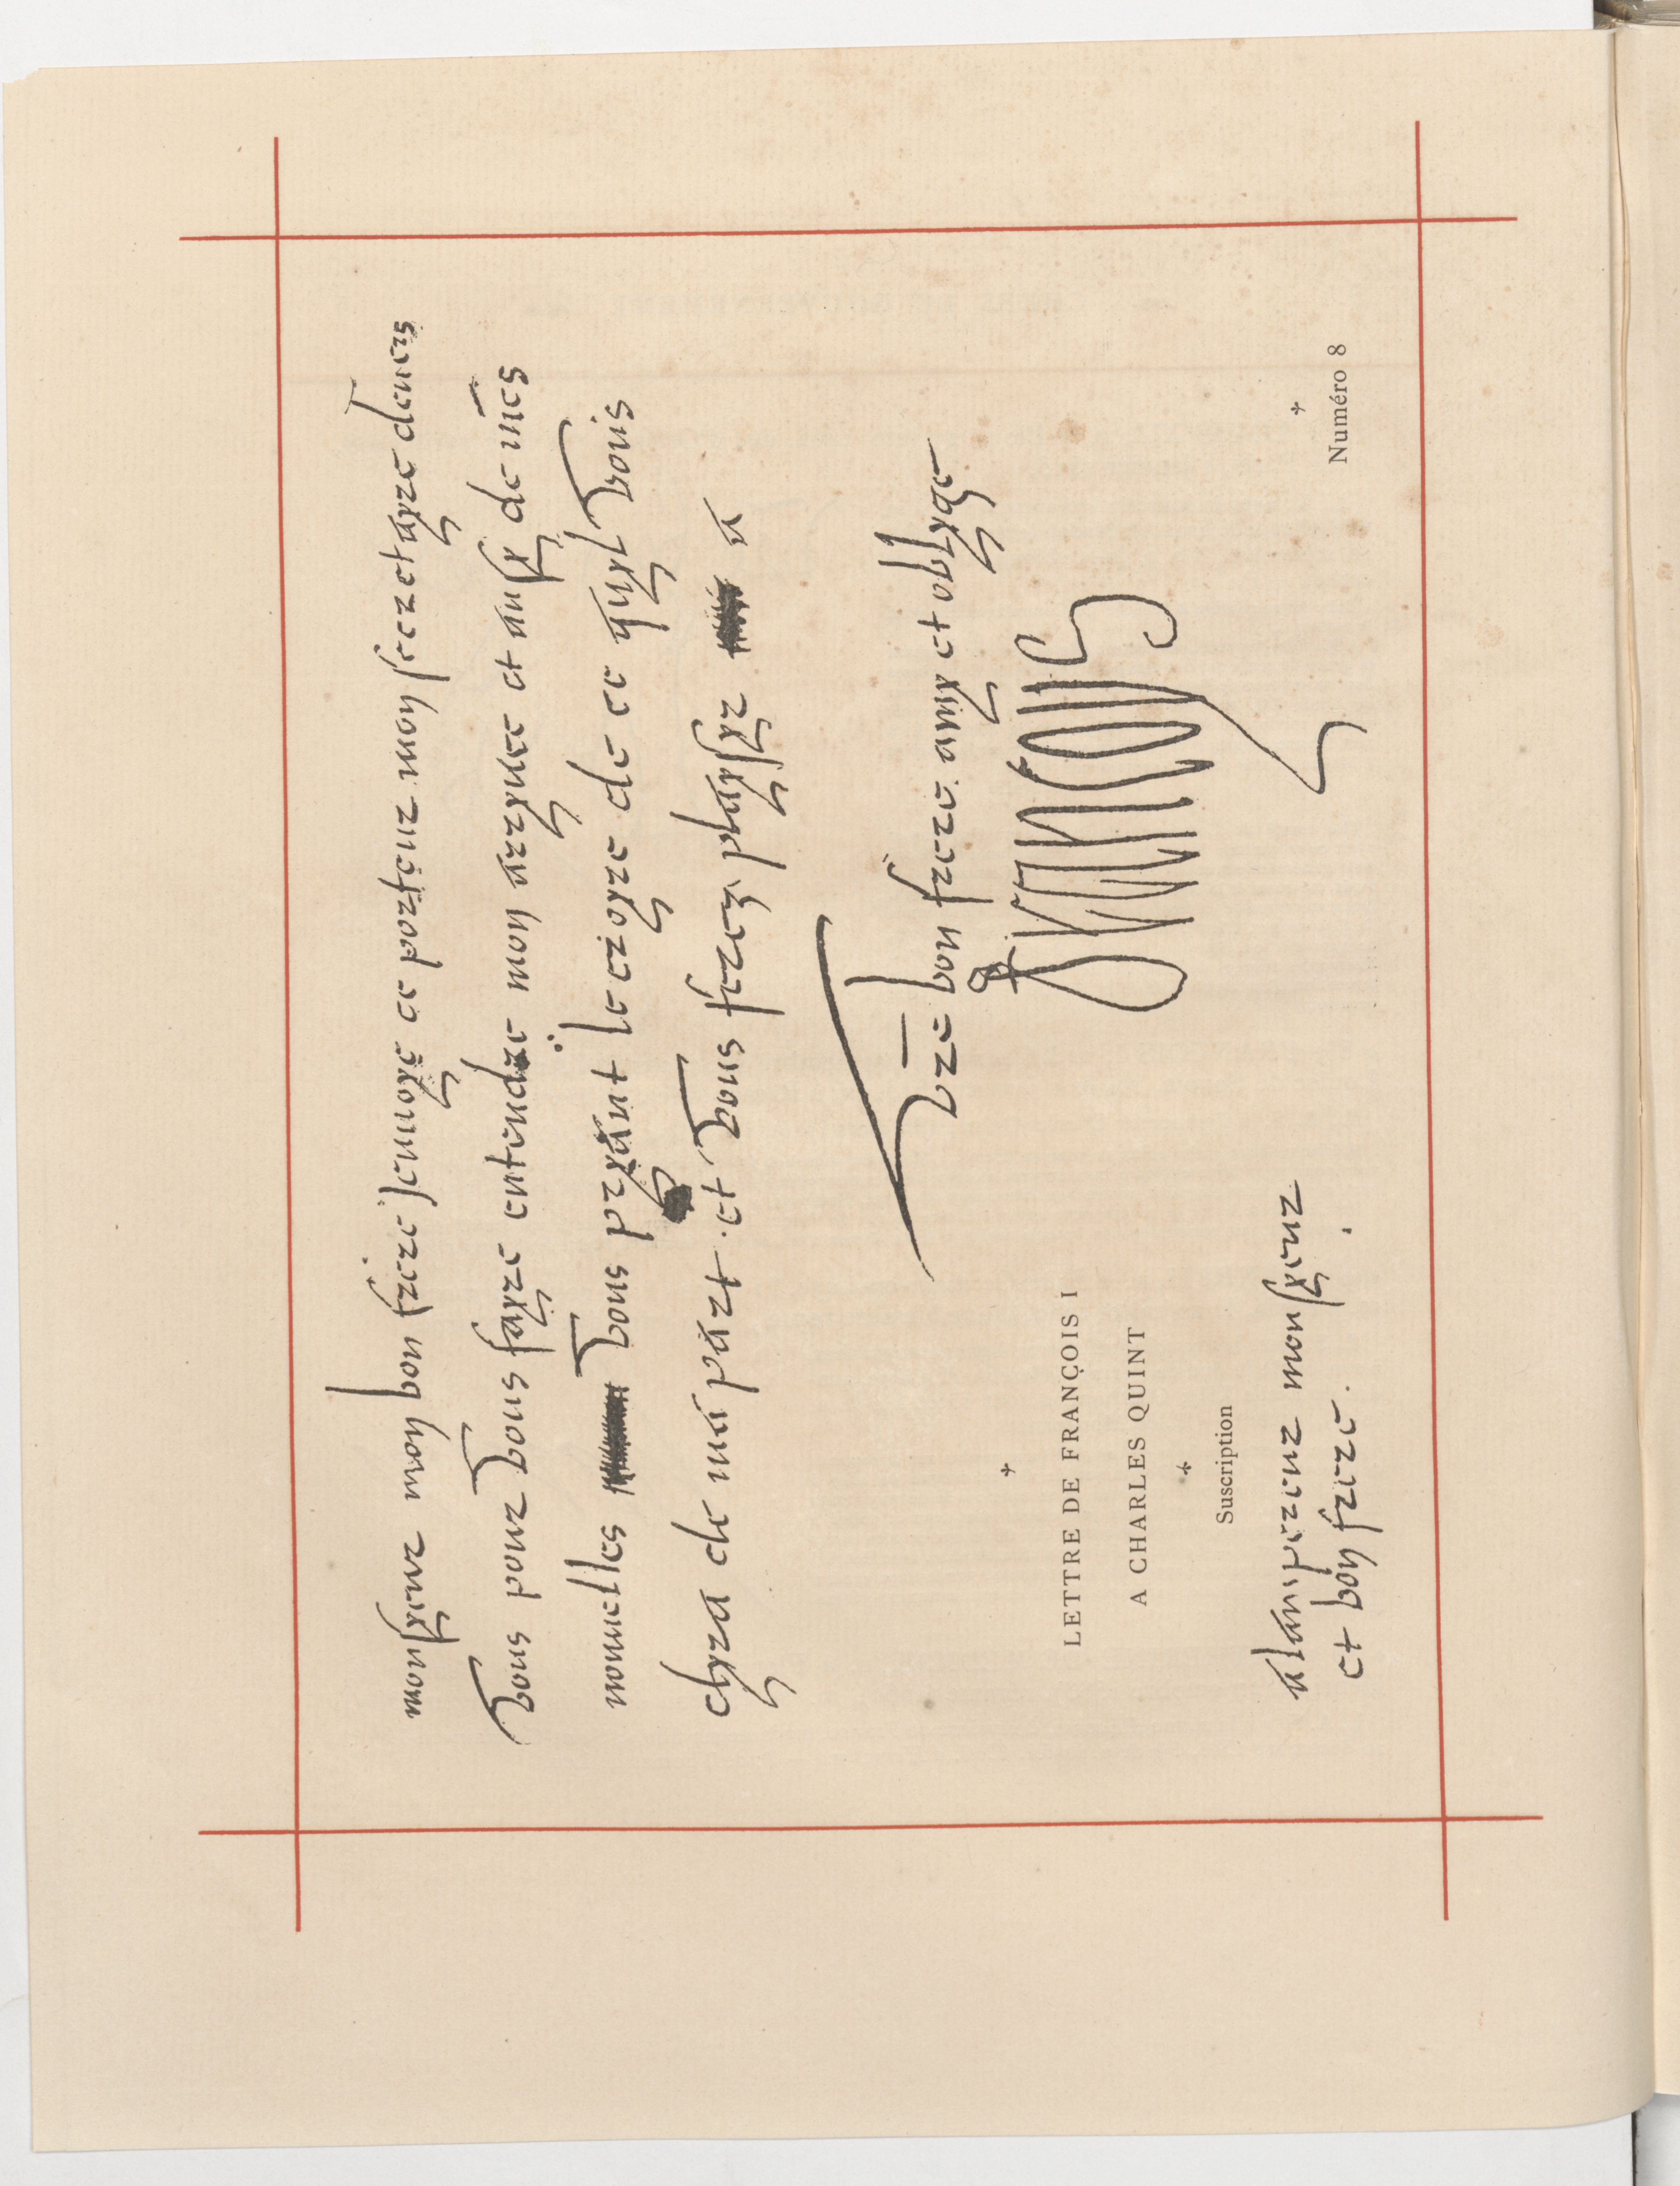 monsyeur mon bon frere Jenuoye ce porteur mon secretayre deuers
vous pour vous fayre entendre mon arryuee et ausy de mes
nouuelles vous pryant le croyre de ce quyl vous
dyra de ma part et vous ferez playsyr a
vr̄e bon frere amy et oblyge
LETTRE DE FRANÇOIS I
A CHARLES QUINT
Suscription
a lampereur monsyeur
et bon frere.
Numéro 8